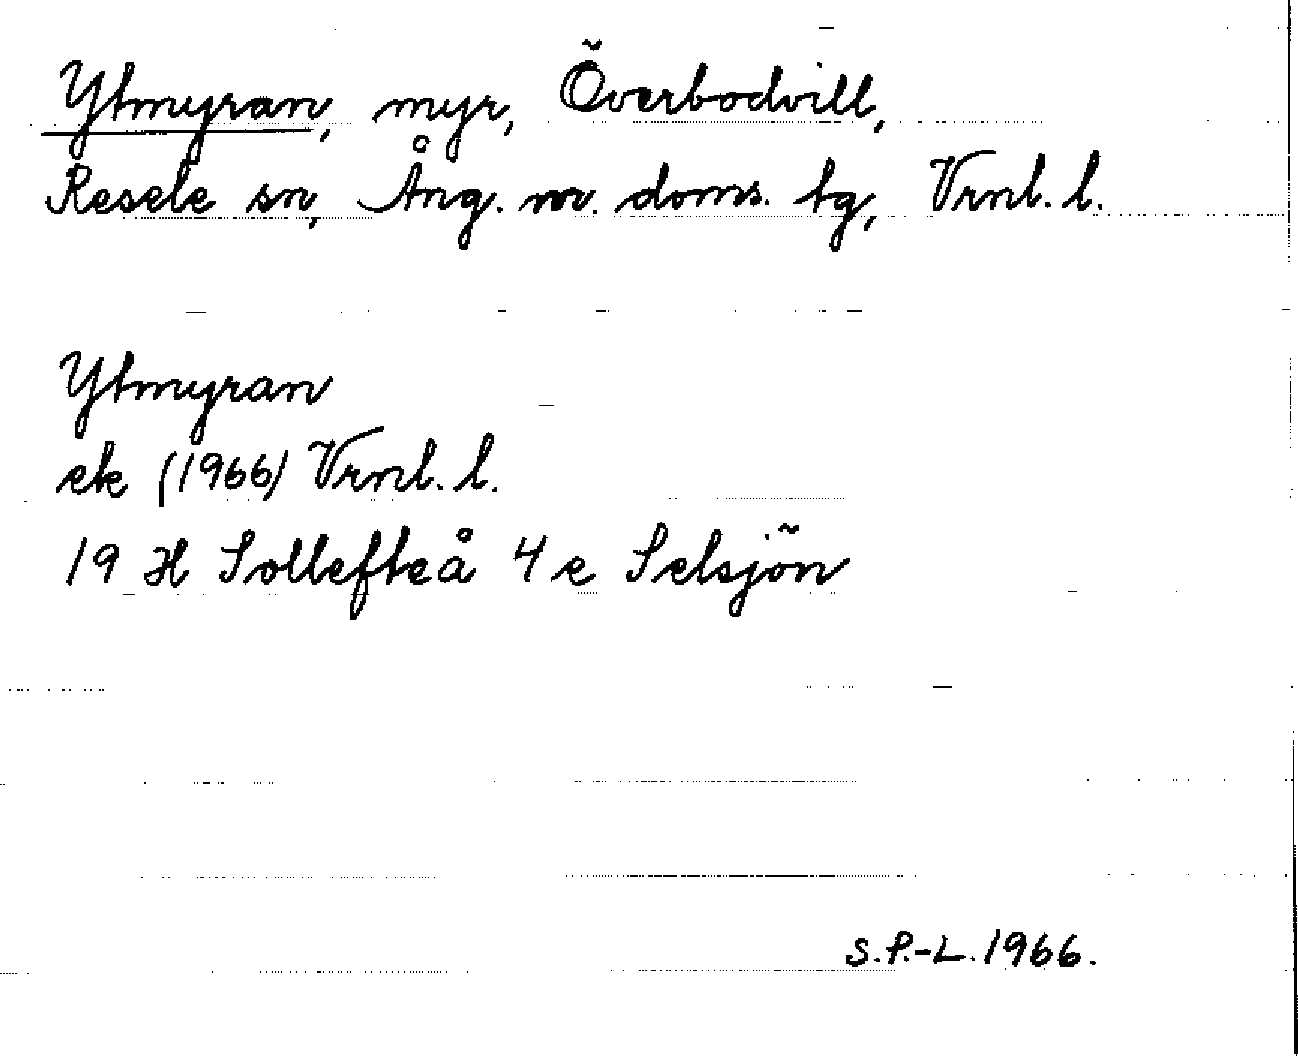 Ytmyran, myr, Överbodvill,
Resele sn, Ång. v. doms. tg, Vrnl. l.
Ytmyran
ek (1966) Vrnl. l.
19 H Sollefteå 4 e Selsjön
S.P.-L. 1966.